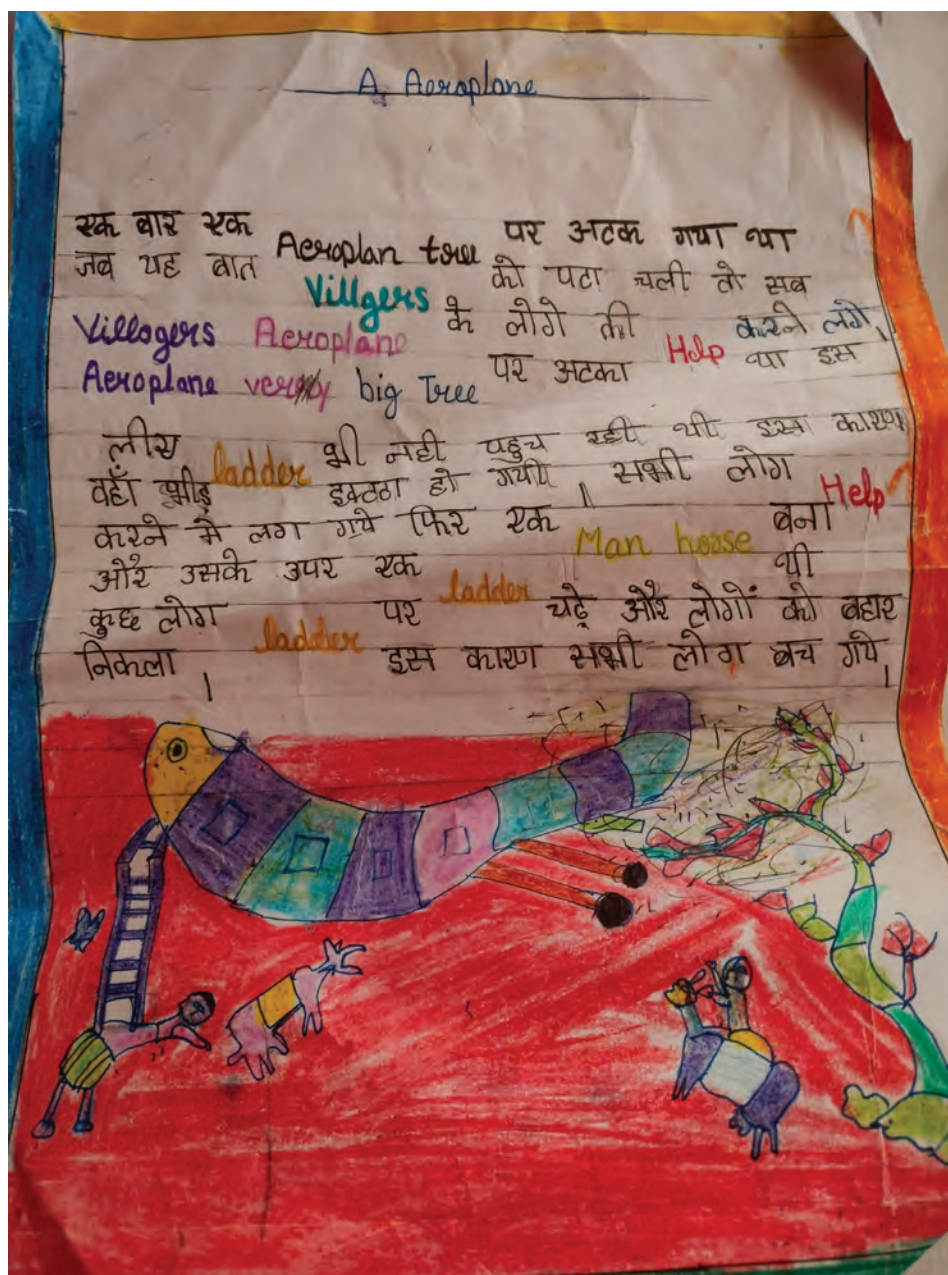 A Aeroplane
एक बार एक Aeroplan tree पर अटक गया था
जब यह बात Villgers को पता चली तो सब
Villagers Aeroplane के लोगे की Help करने लगे।
Aeroplane very big Tree पर अटका था इस
लीए ladder भी नही पहुच रही थी इस कारण
वहाँ भीड़ इक्टठा हो गयीी। सभी लोग Help
करने मे लग गये फिर एक Man hoose बना
और उसके उपर एक ladder थी
कुछ लोग ladder पर चढ़े और लोगों को बहार
निकला। इस कारण सभी लोग बच गये।